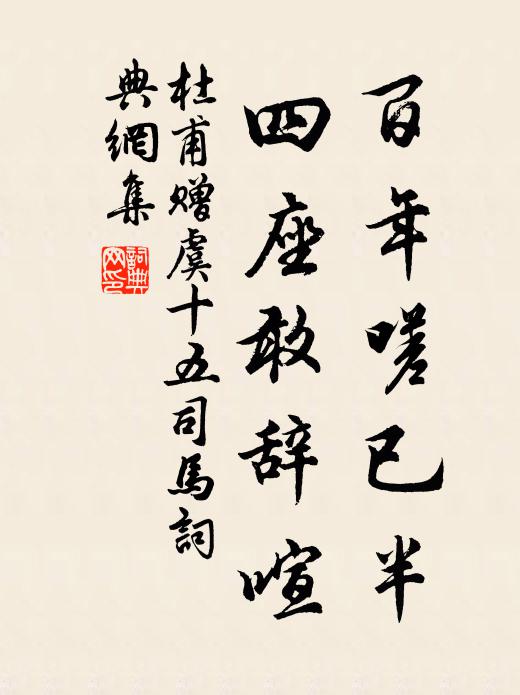 百年嗟已半
四座敢辞喧
杜甫赠虞十五司馬詞
典網集
詞典
网印